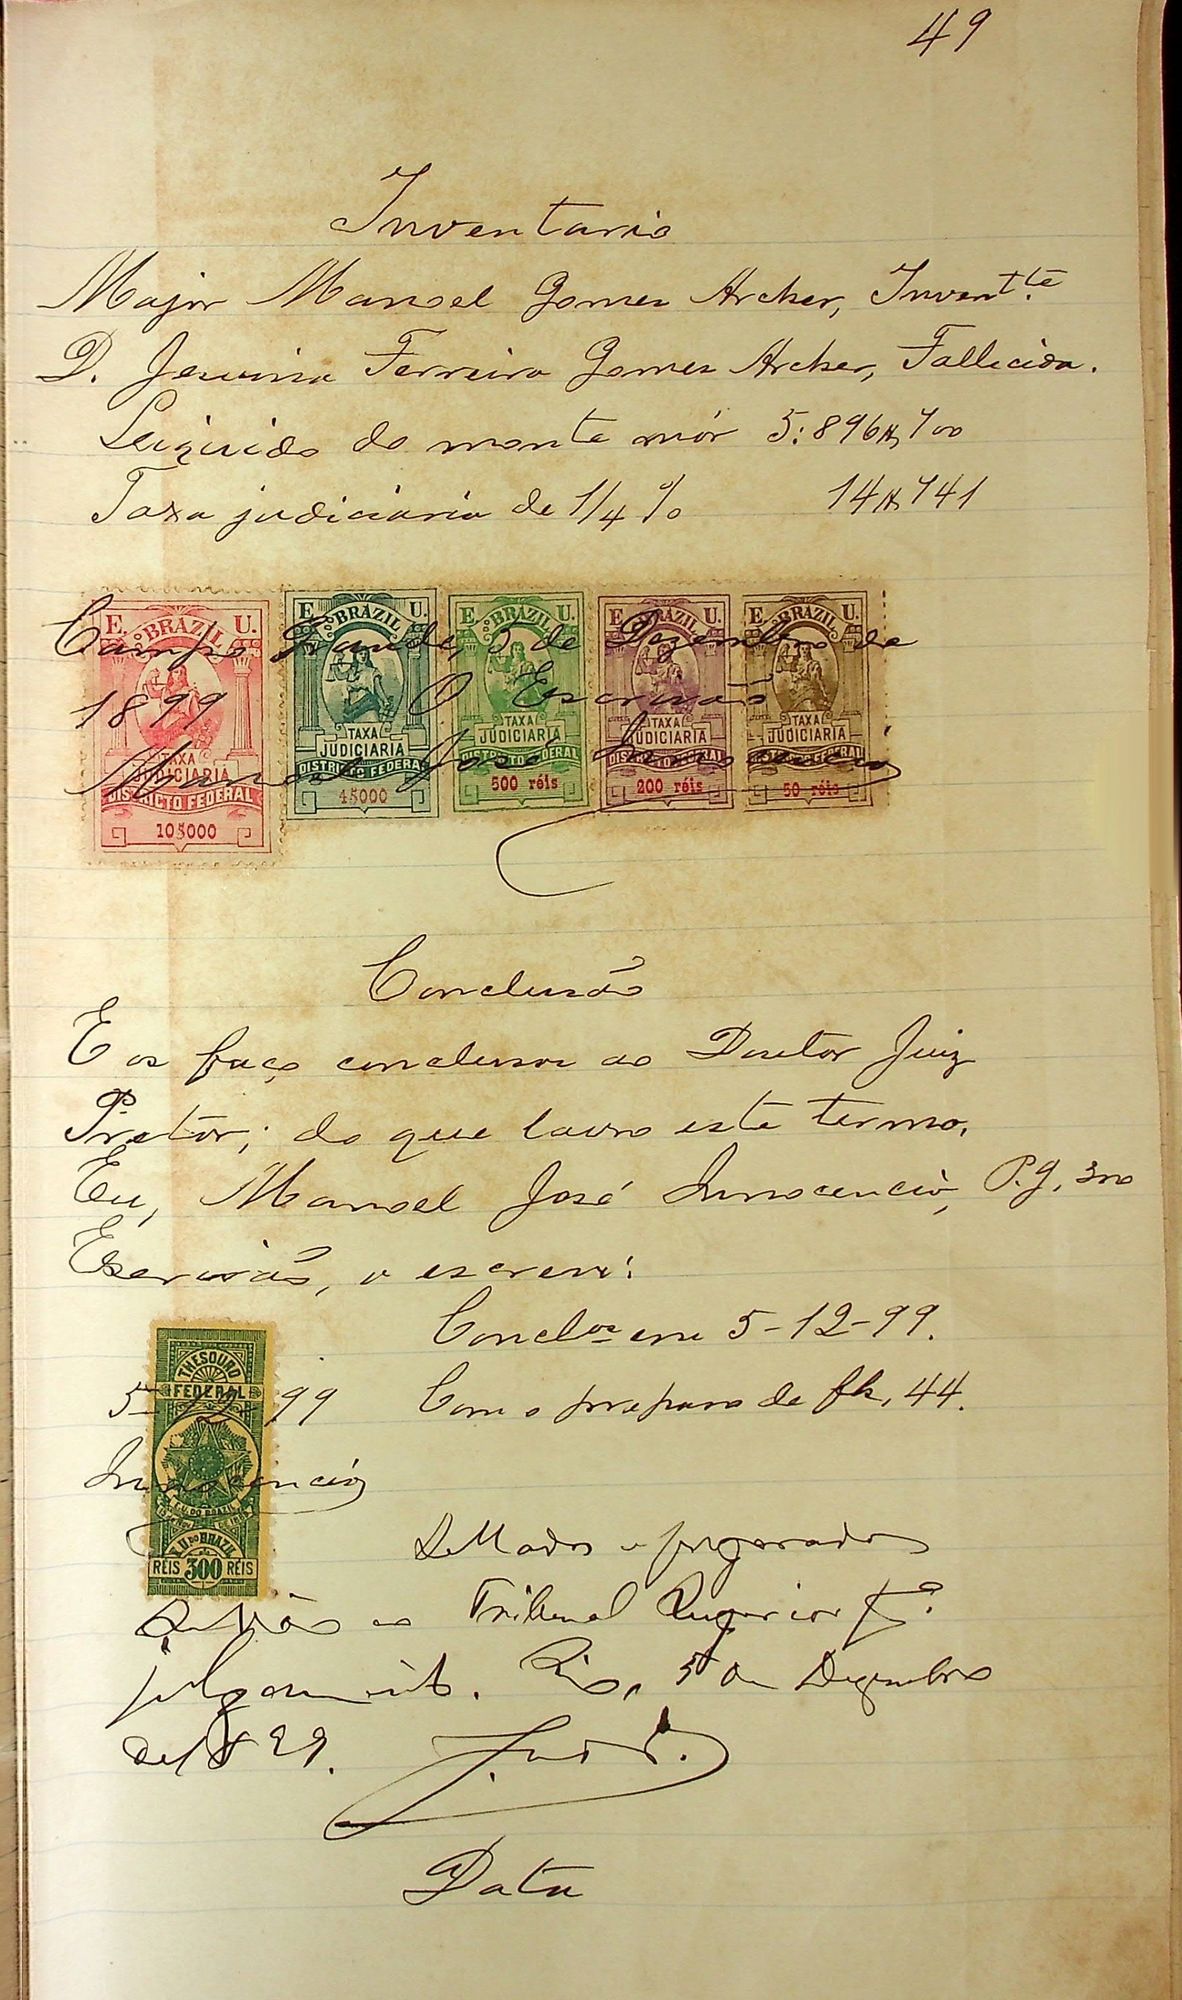 49
Inventario
Major Manoel Gomes Archer, Invent.te
D. Jesuina Ferreira Gomes Archer, Fallecida.
Liquido do monte mór 5:896$700
Taxa judiciaria de 1/4 % 14$741
E. U. DO BRAZIL TAXA JUDICIARIA DISTRICTO FEDERAL 10$000
E. U. DO BRAZIL TAXA JUDICIARIA DISTRICTO FEDERAL 4$000
E. U. DO BRAZIL TAXA JUDICIARIA DISTRICTO FEDERAL 500 réis
E. U. DO BRAZIL TAXA JUDICIARIA DISTRICTO FEDERAL 200 réis
E. U. DO BRAZIL TAXA JUDICIARIA DISTRICTO FEDERAL 50 réis
Campo Grande, 5 de Dezembro de
1899 O Escrivão
Manoel José Innocencio
Conclusão
E os faço conclusos ao Doutor Juiz
Pretor; do que lavro este termo.
Eu, Manoel José Innocencio,
Escrivão, o escrevi:
Concl.os em 5-12-99.
5-12-99 Com o preparo de fls. 44.
Innocencio
THESOURO FEDERAL
E. U. DO BRAZIL
15 de Nov. de 1889
E. U. DO BRAZIL
RÉIS 300 RÉIS
Sellados e preparados
subão ao Tribunal Superior p.a
julgamento. Rio, 5 de Dezembro
de 1899.
Data